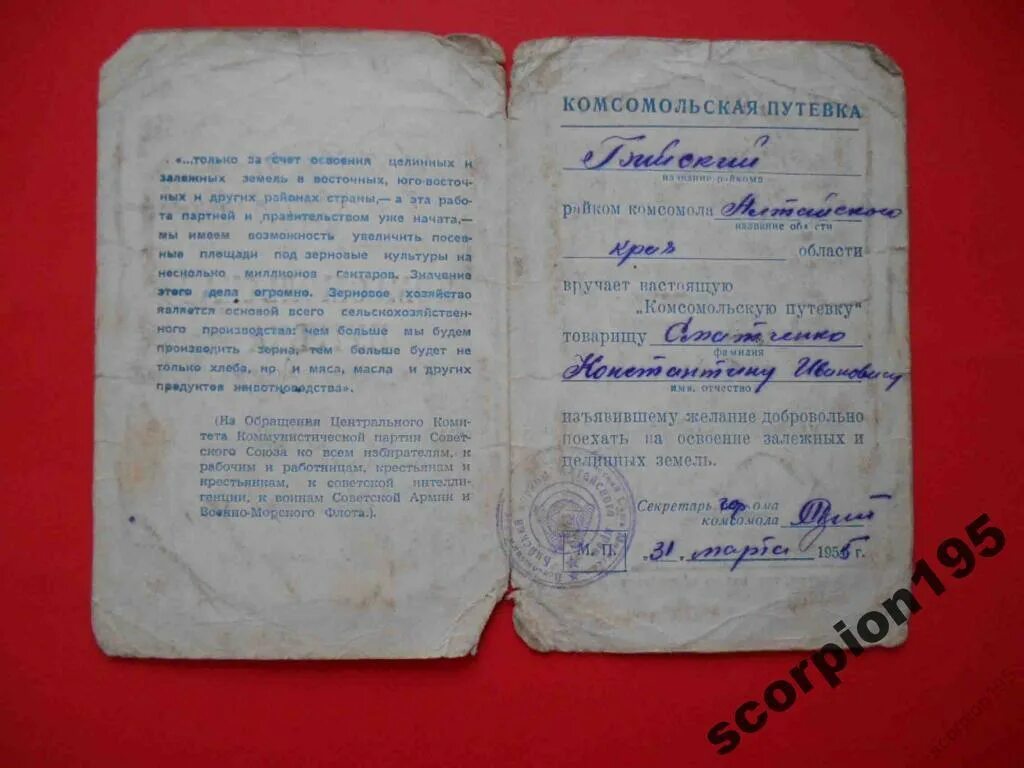 „...только за счет освоения целинных и
залежных земель в восточных, юго-восточ-
ных и других районах страны,— а эта рабо-
та партией и правительством уже начата,—
мы имеем возможность увеличить посев-
ные площади под зерновые культуры на
несколько миллионов гектаров. Значение
этого дела огромно. Зерновое хозяйство
является основой всего сельскохозяйствен-
ного производства: чем больше мы будем
производить зерна, тем больше будет не
только хлеба, но и мяса, масла и других
продуктов животноводства».
(Из Обращения Центрального Коми-
тета Коммунистической партии Совет-
ского Союза ко всем избирателям, к
рабочим и работницам, крестьянам и
крестьянкам, к советской интелли-
генции, к воинам Советской Армии и
Военно-Морского Флота.).
КОМСОМОЛЬСКАЯ ПУТЕВКА
Бийский
название райкома
райком комсомола Алтайского
название области
края области
вручает настоящую
„Комсомольскую путевку"
товарищу
фамилия
Константину Ивановичу
имя, отчество
изъявившему желание добровольно
поехать на освоение залежных и
целинных земель.
Секретарь горкома
комсомола
М. П. „31" марта 1955 г.
scorpion195
scorpion195